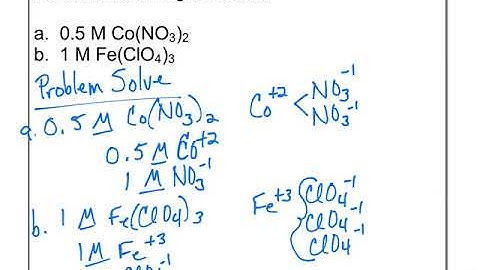 a. 0.5 M Co(NO₃)₂
b. 1 M Fe(ClO₄)₃
Problem Solve
a. 0.5 M Co(NO₃)₂
0.5 M Co⁺²
1 M NO₃⁻¹
Co⁺² < NO₃⁻¹
NO₃⁻¹
b. 1 M Fe(ClO₄)₃
1 M Fe⁺³
Fe⁺³ { ClO₄⁻¹
ClO₄⁻¹
ClO₄⁻¹